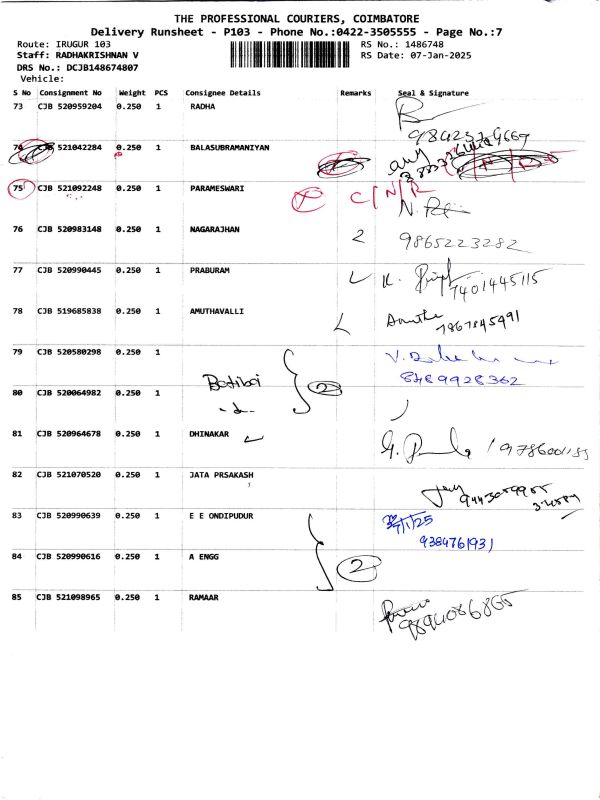 THE PROFESSIONAL COURIERS, COIMBATORE
Delivery Runsheet - P103 - Phone No.:0422-3505555 - Page No.:7
Route: IRUGUR 103
RS No.: 1486748
Staff: RADHAKRISHNAN V
RS Date: 07-Jan-2025
DRS No.: DCJB148674807
Vehicle:
S No Consignment No Weight PCS Consignee Details Remarks Seal & Signature
73 CJB 520959204 0.250 1 RADHA
74 CJB 521042284 0.250 1 BALASUBRAMANIYAN
75 CJB 521092248 0.250 1 PARAMESWARI C/N/R
76 CJB 520983148 0.250 1 NAGARAJHAN 2
9865223282
77 CJB 520990445 0.250 1 PRABURAM K.
7401445115
78 CJB 519685838 0.250 1 AMUTHAVALLI
7867845491
79 CJB 520580298 0.250 1
2
8489928362
80 CJB 520064982 0.250 1
81 CJB 520964678 0.250 1 DHINAKAR
82 CJB 521070520 0.250 1 JATA PRSAKASH
83 CJB 520990639 0.250 1 E E ONDIPUDUR
9384761931
84 CJB 520990616 0.250 1 A ENGG 2
85 CJB 521098965 0.250 1 RAMAAR
9894086865